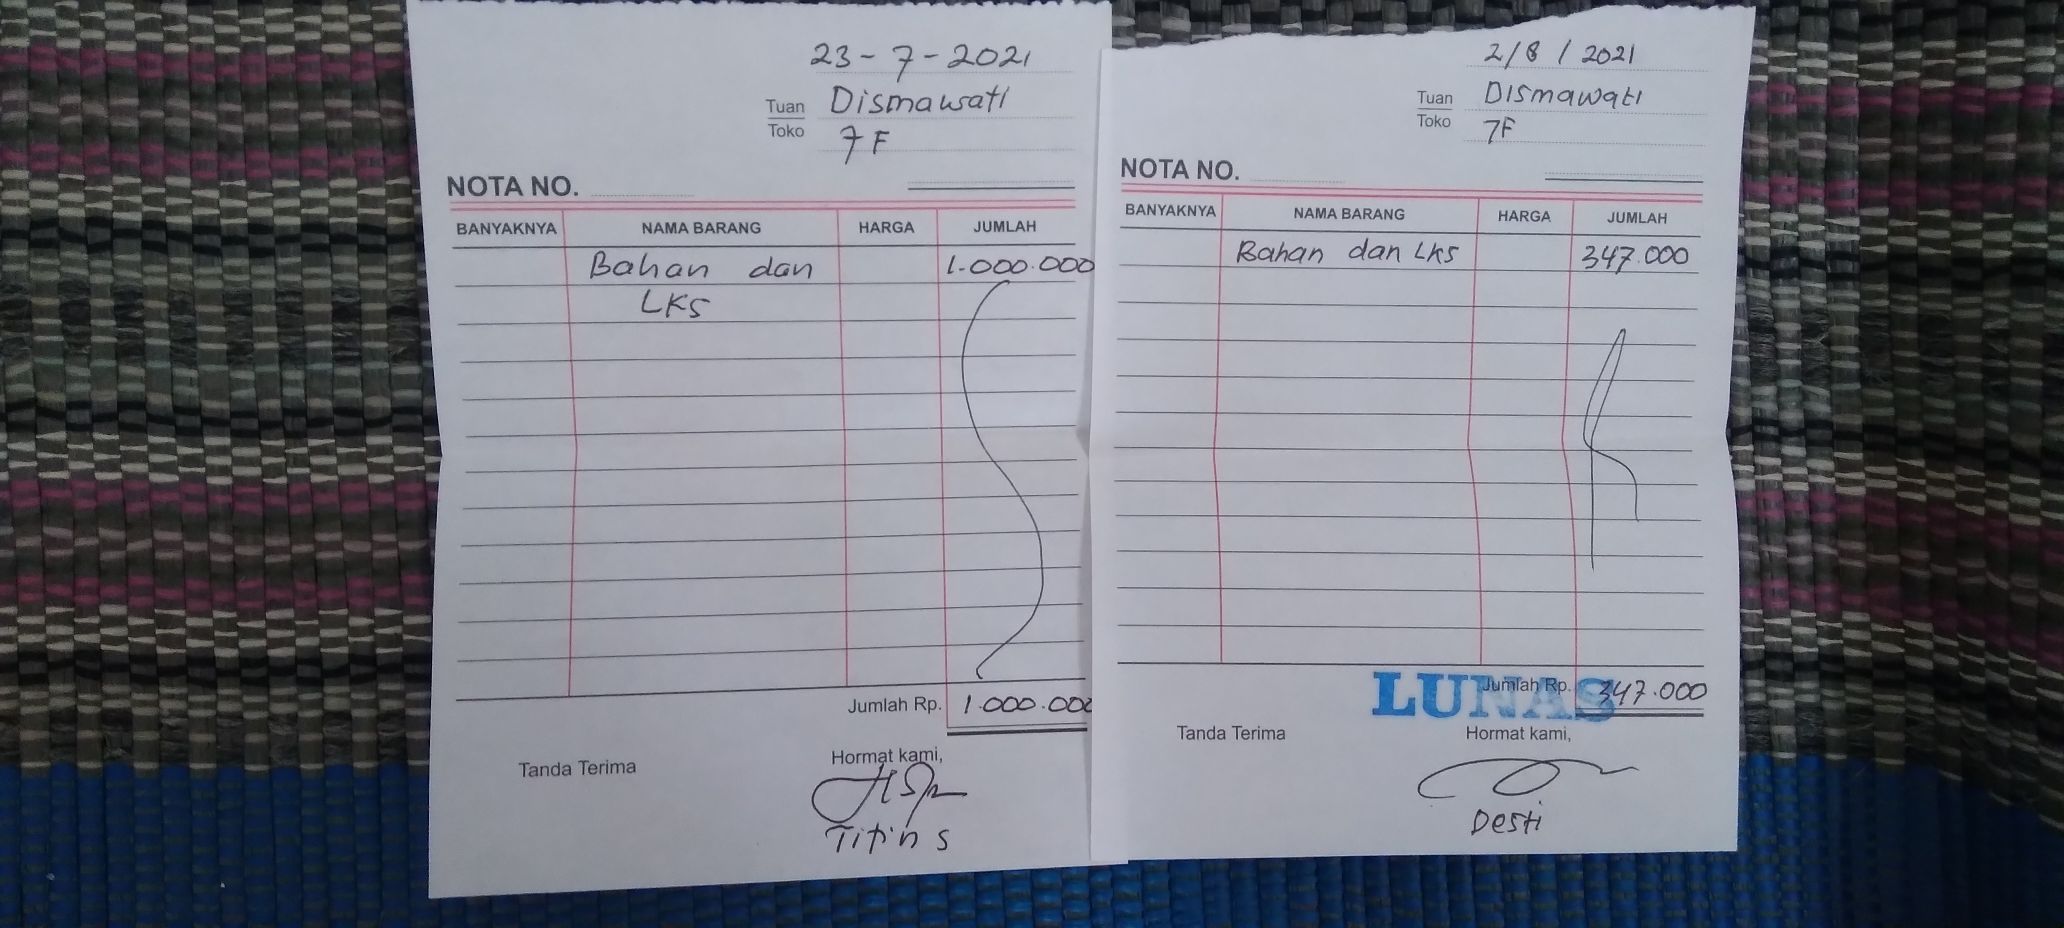 23-7-2021
Tuan Dismawati
Toko 7F
NOTA NO.
BANYAKNYA NAMA BARANG HARGA JUMLAH
Bahan dan 1.000.000
LKS
Jumlah Rp. 1.000.000
Tanda Terima Hormat kami,
Titin S
2/8/2021
Tuan Dismawati
Toko 7F
NOTA NO.
BANYAKNYA NAMA BARANG HARGA JUMLAH
Bahan dan Lks 347.000
LUNAS
Jumlah Rp. 347.000
Tanda Terima Hormat kami,
Desti